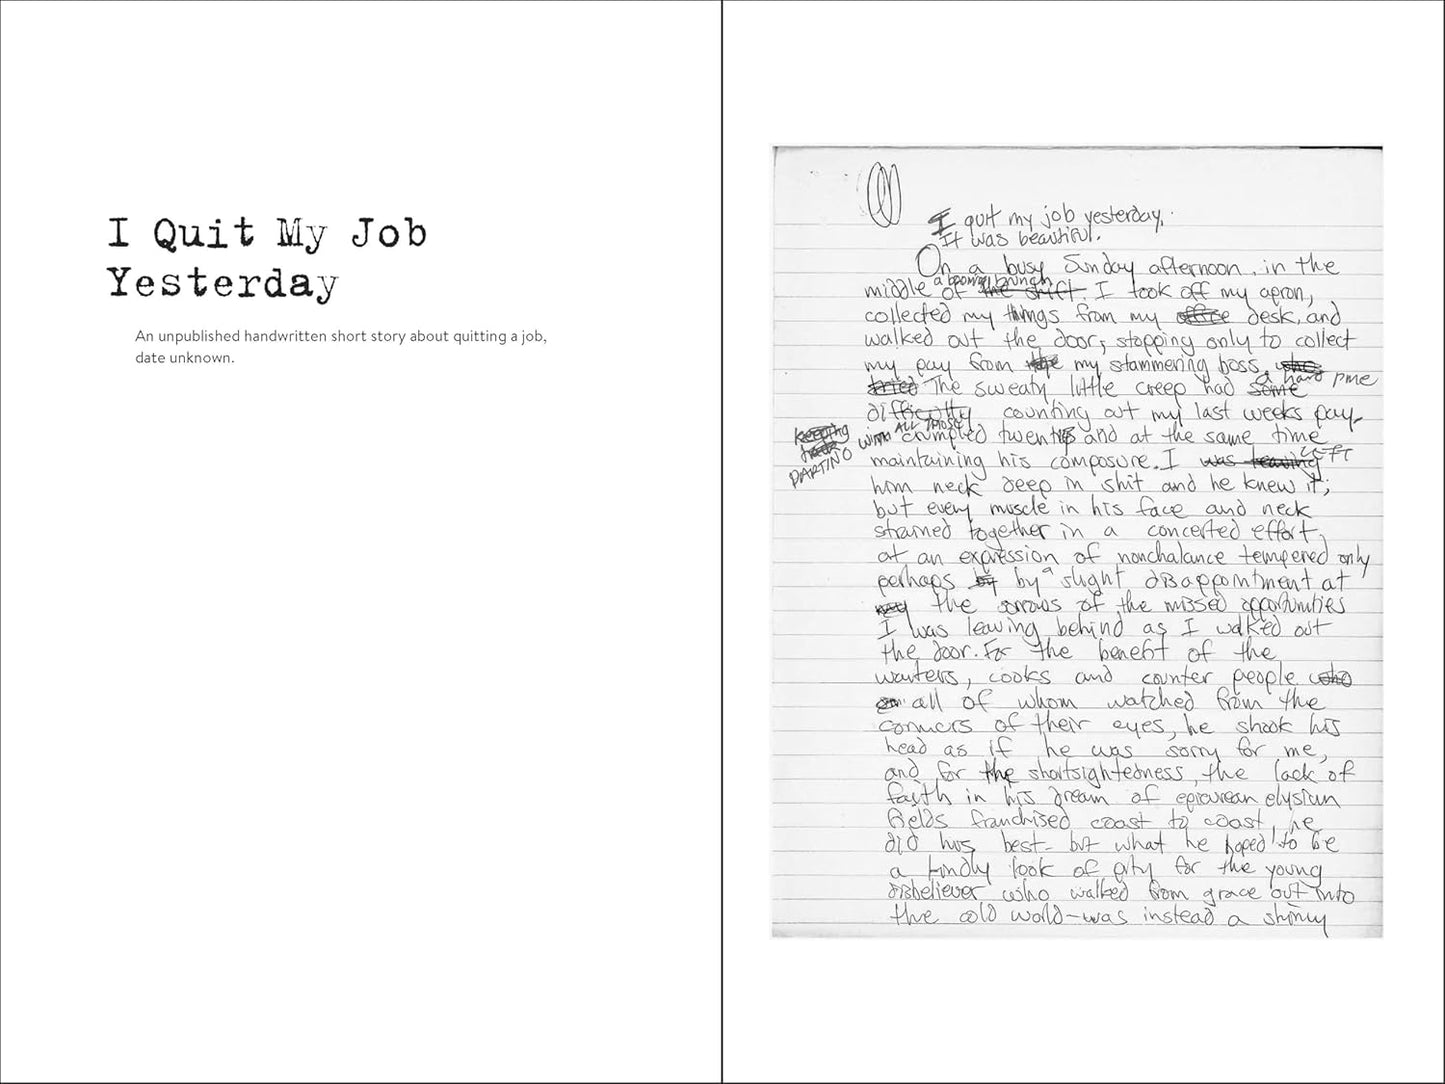 I Quit My Job
Yesterday
An unpublished handwritten short story about quitting a job,
date unknown.
I quit my job yesterday.
It was beautiful.
On a busy Sunday afternoon, in the
a booming brunch
middle of the shift. I took off my apron,
collected my things from my office desk, and
walked out the door, stopping only to collect
my pay from the my stammering boss, who
a hard time
tried The sweaty little creep had some
difficulty counting out my last weeks pay
keeping
track
PARTING
WITH ALL THOSE
crumpled twenties and at the same time
LEFT
maintaining his composure. I was leaving
him neck deep in shit and he knew it;
but every muscle in his face and neck
strained together in a concerted effort,
at an expression of nonchalance tempered only
perhaps by by a slight disappointment at
the sorrows of the missed opportunities
I was leaving behind as I walked out
the door. For the benefit of the
waiters, cooks and counter people who
all of whom watched from the
corners of their eyes, he shook his
head as if he was sorry for me,
and for the shortsightedness, the lack of
faith in his dream of epicurean elysian
fields franchised coast to coast, he
did his best - but what he hoped to be
a kindly look of pity for the young
disbeliever who walked from grace out into
the cold world - was instead a shiny